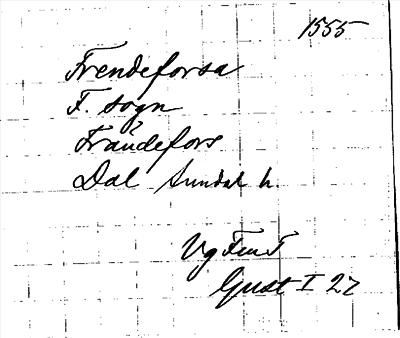 1555
Frendeforsa
F. sogn
Frändefors
Dal Sundal h.
Vg FmT
Gust I 27